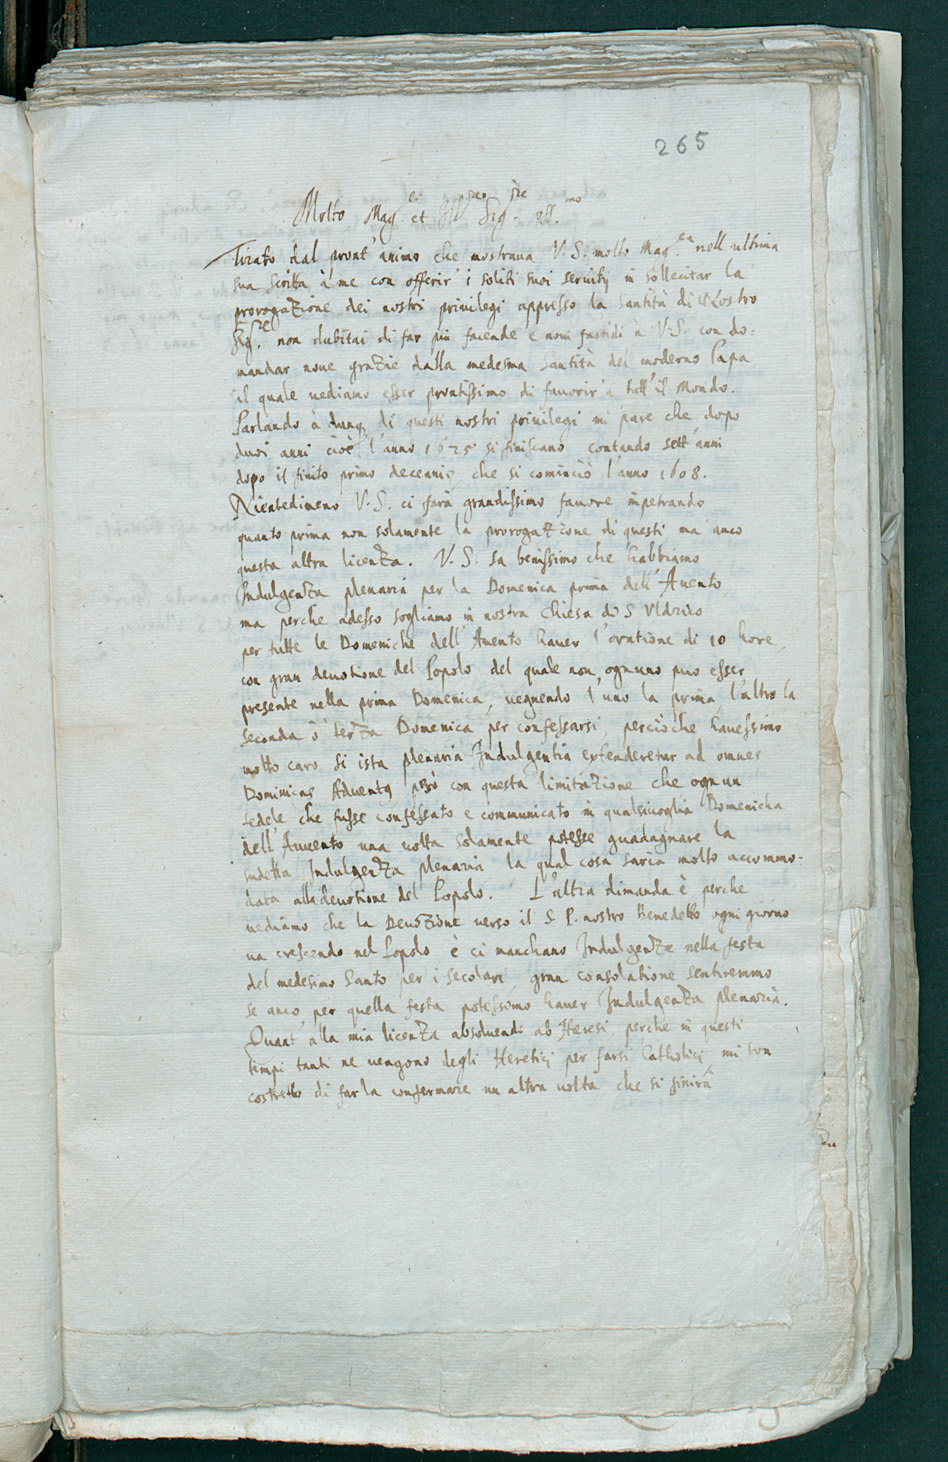 265
Molto Mag.co et
Tirato dal pront' animo che mostraua V. S. molto Mag.ca nell ultima
sua scritta à me con offerir i soliti suoi seruitij in sollecitar la
prorogazione dei nostri priuilegi appresso la santità di Nostro
Sig.re non dubitai di far piu facende e noui fastidi à V. S. con do-
mandar noue grazie dalla medesma santità del moderno Papa
il quale uediamo esser prontissimo di fauorir à tutt' il mondo.
Parlando à dunq di questi nostri priuilegi mi pare che dopo
duoi anni cioè l'anno 1625 si finiscano contando sett' anni
dopo il finito primo decennio che si cominciò l'anno 1608.
Nientedimeno V. S. ci farà grandissimo fauore impetrando
quanto prima non solamente la prorogatione di questi ma anco
questa altra licenza. V. S. sa benissimo che habbiamo
Indulgenza plenaria per la Domenica prima dell' Auento
ma perche adesso sogliamo in nostra chiesa di S Uldrico
per tutte le Domeniche dell' Auento hauer l'oratione di 10 hore
con gran deuotione del Popolo del quale non ognuno puo esser
presente nella prima Domenica, uegnendo l'uno la prima l'altro la
seconda ò terza Domenica per confessarsi, perciò che hauessimo
molto caro si ista plenaria Indulgentia extenderetur ad omnes
Dominicas Aduentq però con questa limitazione che ognun
fedele che fusse confessato e communicato in qualsiuoglia Domenicha
dell' Auuento una uolta solamente potesse guadagnare la
sudetta Indulgenza plenaria la qual cosa saria molto accommo-
data alla deuotione del Popolo. L'altra dimanda è perche
uediamo che la Deuozione uerso il S. P. nostro Benedetto ogni giorno
ua crescendo nel Popolo è ci manchano Indulgenze nella festa
del medesimo Santo per i secolari, gran consolatione sentiremmo
se anco per quella festa potessimo hauer Indulgenza plenaria.
Quant' alla mia licenza absoluendi ab Heresi, perche in questi
tempi tanti ne uengono degli Heretici per farsi Catholici mi son
costretto di farla confermare un altra uolta che si finirà